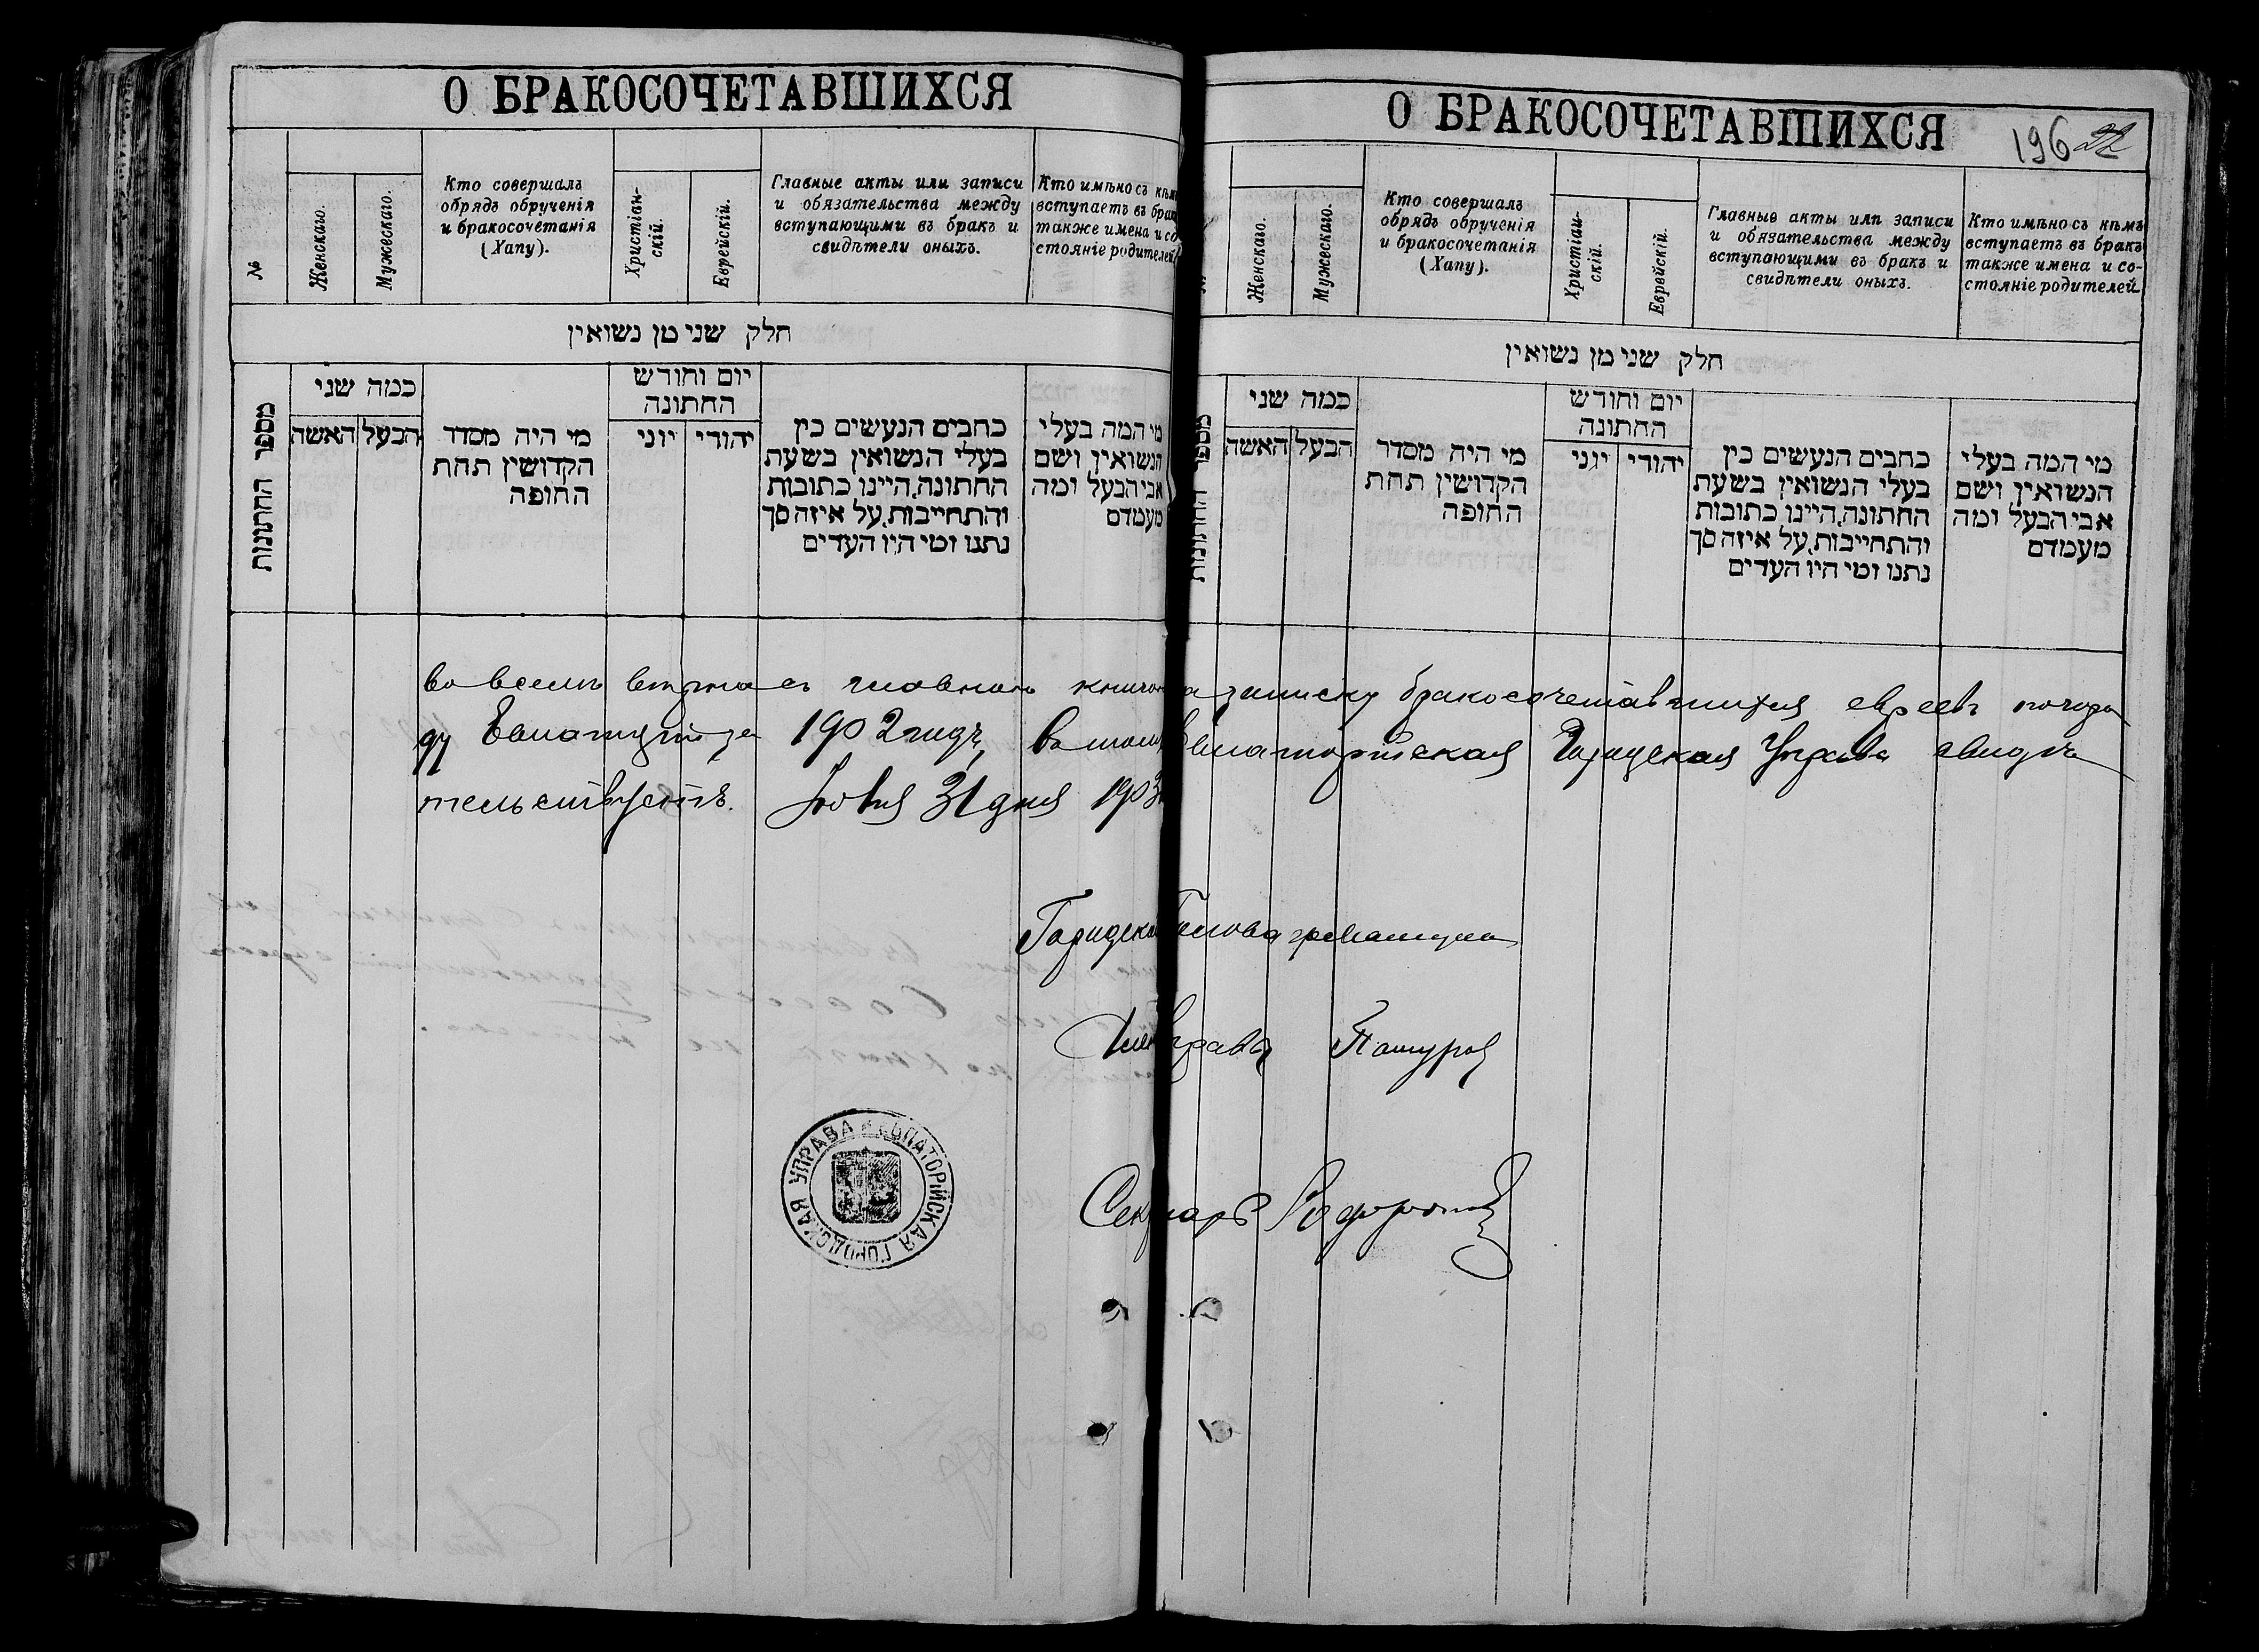 О БРАКОСОЧЕТАВШИХСЯ
№
Женскаго.
Мужескаго.
Кто совершалъ
обрядъ обрученія
и бракосочетанія
(Хапу).
Христіан-
скій.
Еврейскій.
Главные акты или записи
и обязательства между
вступающими въ бракъ и
свидѣтели оныхъ.
Кто имѣно съ кѣм
вступаетъ въ брак
также имена и со
стояніе родителей
חלק שני מן נשואין
מספר החתונות
כמה שני
האשה
הבעל
מי היה מסדר
הקדושין תחת
החופה
יום וחודש
החתונה
יוני
יהודי
כחבים הנעשים כין
בעלי הנשואין בשעת
החתונה,היינו כתובות
והתחייבות,על איזה סך
נתנו ומי היו העדים
מי המה בעלי
הנשואין ושם
אבי הבעל ומה
מעמדם
О БРАКОСОЧЕТАВШИХСЯ
196 22
Женскаго.
Мужескаго.
Кто совершалъ
обрядъ обрученія
и бракосочетанія
(Хапу).
Христіан-
скій.
Еврейскій.
Главные акты или записи
и обязательства между
вступающими въ бракъ и
свидѣтели оныхъ.
Кто имѣно съ кѣмъ
вступаетъ въ бракъ
также имена и со-
стояніе родителей
חלק שני מן נשואין
כמה שני
האשה
הבעל
מי היה מסדר
הקדושין תחת
החופה
יום וחודש
החתונה
יוני
יהודי
כחבים הנעשים כין
בעלי הנשואין בשעת
החתונה,היינו כתובות
והתחייבות,על איזה סך
נתנו ומי היו העדים
מי המה בעלי
הנשואין ושם
אבי הבעל ומה
מעמדם
во всемъ вѣрна съ главною на записку бракосочетавшихся евреевъ по горо
ду Евпаторіи за 1902 годъ, въ томъ Евпаторійская Городская Управа свидѣ
тельствуетъ. Іюля 31 дня 1903
Голова
Управы
Секрарь
ЕВПАТОРІЙСКАЯ ГОРОДСКАЯ УПРАВА